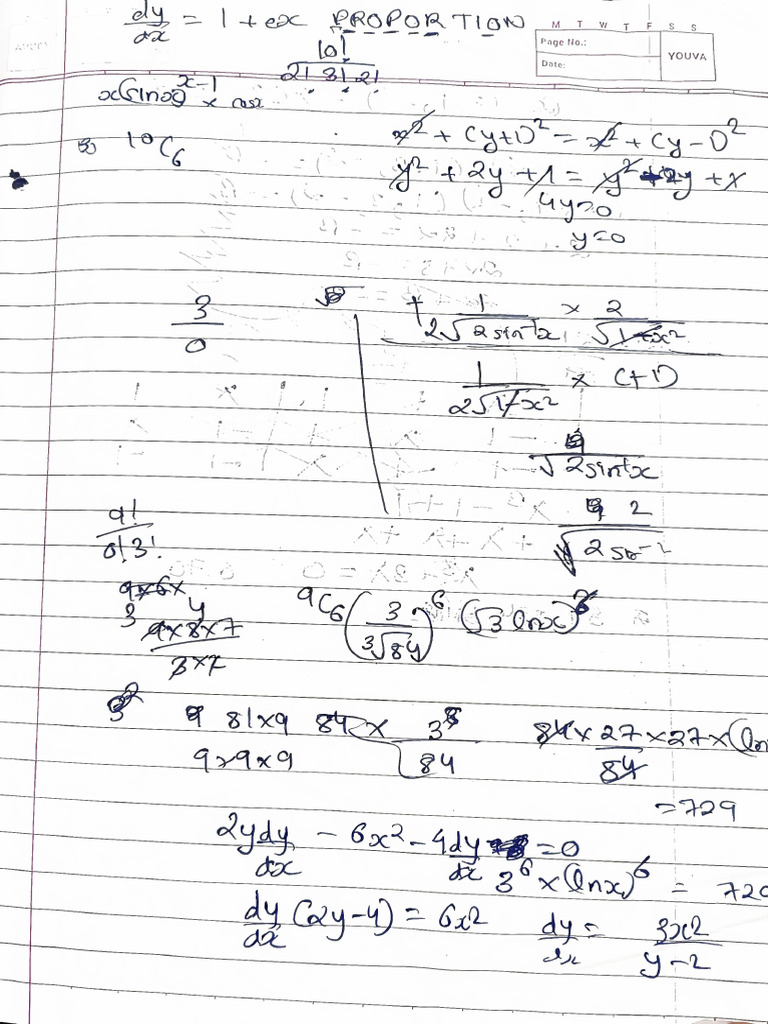 dy/dx = 1 + ex PROPORTION
M T W T F S S
Page No.:
Date:
YOUVA
10!
2! 3! 2!
x(sinx)^x-1 × cosx
10C6
x² + (y+1)² = x² + (y-1)²
y² + 2y + 1 = y² - 2y + x
4y=0
y=0
3/0
+ 1/2√2sin⁻¹x × 2/√1-x²
1/2√1-x² × (+1)
√2sin⁻¹x
2
9!
0! 3!
9×6×
3 4
9×8×7
3×7
9C6 (3/3√84)^6 (√3 lnx)^6
9 81×9 84 × 3^8/84
84 × 27/84 × 27 × (ln
9×9×9
=729
2y dy/dx - 6x² - 4 dy/dx = 0
3^6 × (lnx)^6 = 729
dy/dx (2y-4) = 6x² dy/dx = 3x²/y-2